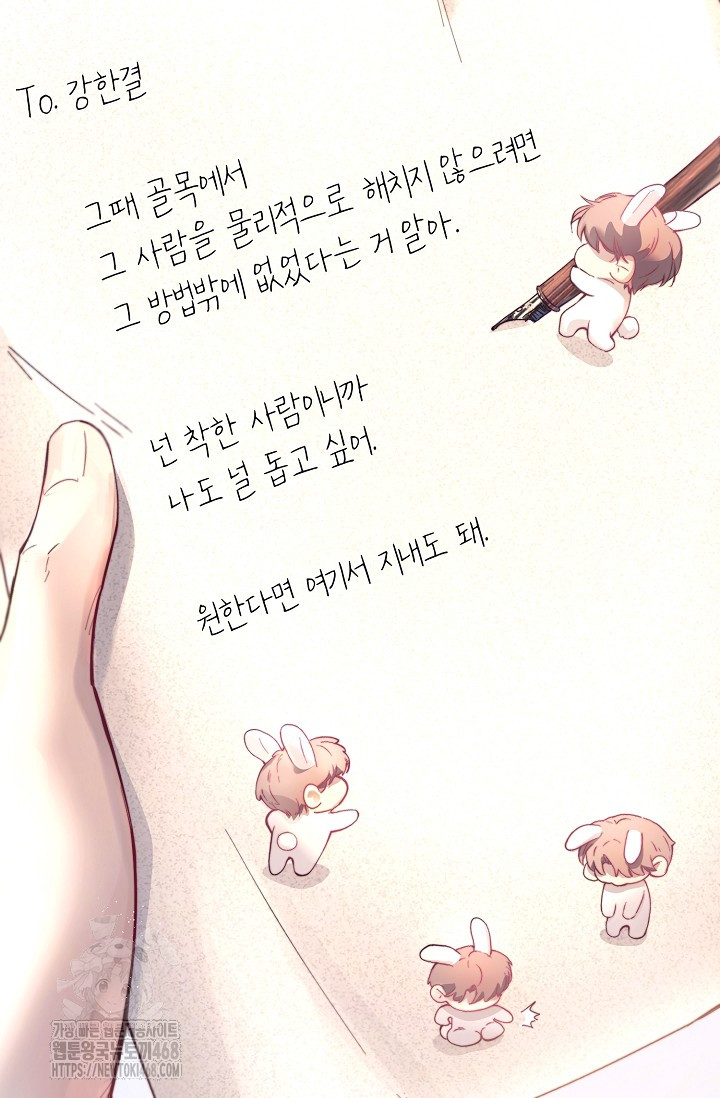 To. 강한결
그때 골목에서
그 사람을 물리적으로 해치지 않으려면
그 방법밖에 없었다는 거 알아.
넌 착한 사람이니까
나도 널 돕고 싶어.
원한다면 여기서 지내도 돼.
가장 빠른 웹툰제공사이트
웹툰왕국뉴토끼468
HTTPS://NEWTOKI468.COM